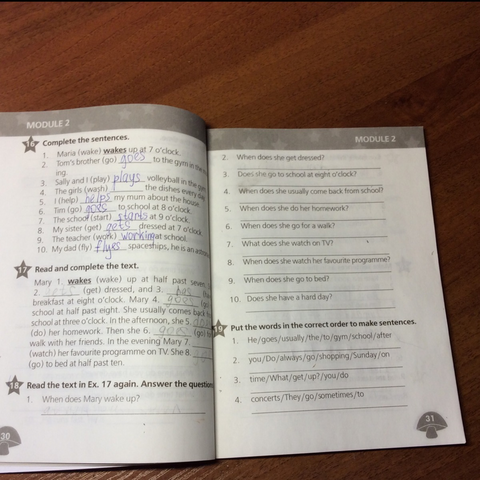 MODULE 2
16 Complete the sentences.
1. Maria (wake) wakes up at 7 o'clock.
2. Tom's brother (go) goes to the gym in the
ing.
3. Sally and I (play) plays volleyball in the gym.
4. The girls (wash) the dishes every day.
5. I (help) helps my mum about the house.
6. Tim (go) goes to school at 8 o'clock.
7. The school (start) starts at 9 o'clock.
8. My sister (get) gets dressed at 7 o'clock.
9. The teacher (work) working at school.
10. My dad (fly) flyes spaceships, he is an
17 Read and complete the text.
Mary 1. wakes (wake) up at half past seven,
2. gets (get) dressed, and 3. has
breakfast at eight o'clock. Mary 4. goes (go)
school at half past eight. She usually comes back
school at three o'clock. In the afternoon, she 5.
(do) her homework. Then she 6. goes (go)
walk with her friends. In the evening Mary 7.
(watch) her favourite programme on TV. She 8.
(go) to bed at half past ten.
18 Read the text in Ex. 17 again. Answer the
1. When does Mary wake up?
30
MODULE 2
2. When does she get dressed?
3. Does she go to school at eight o'clock?
4. When does she usually come back from school?
5. When does she do her homework?
6. When does she go for a walk?
7. What does she watch on TV?
8. When does she watch her favourite programme?
9. When does she go to bed?
10. Does she have a hard day?
19 Put the words in the correct order to make sentences.
1. He/goes/usually/the/to/gym/school/after
2. you/Do/always/go/shopping/Sunday/on
3. time/What/get/up?/you/do
4. concerts/They/go/sometimes/to
31